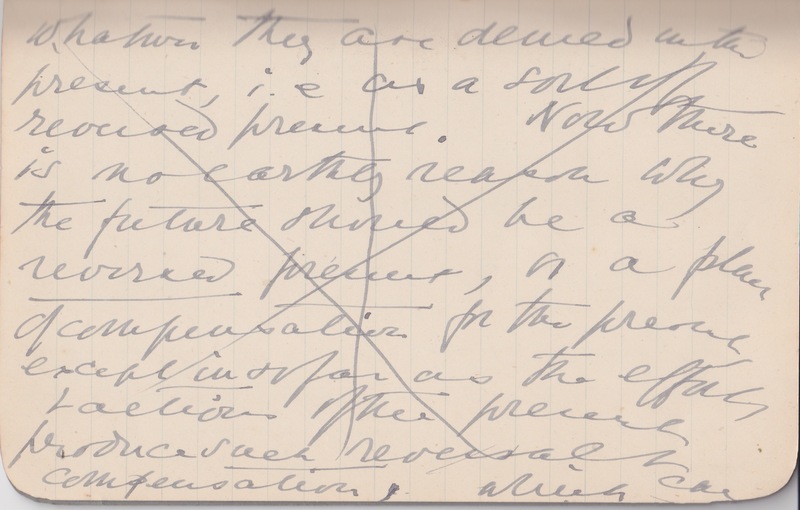 whatever they are denied in the
present, i.e as a sort of
reversed present. Now there
is no earthly reason why
the future should be a
reversed present, or a place
of compensation for the present
except in so far as the efforts
& actions of the present
produce such reversal &
compensation, which can